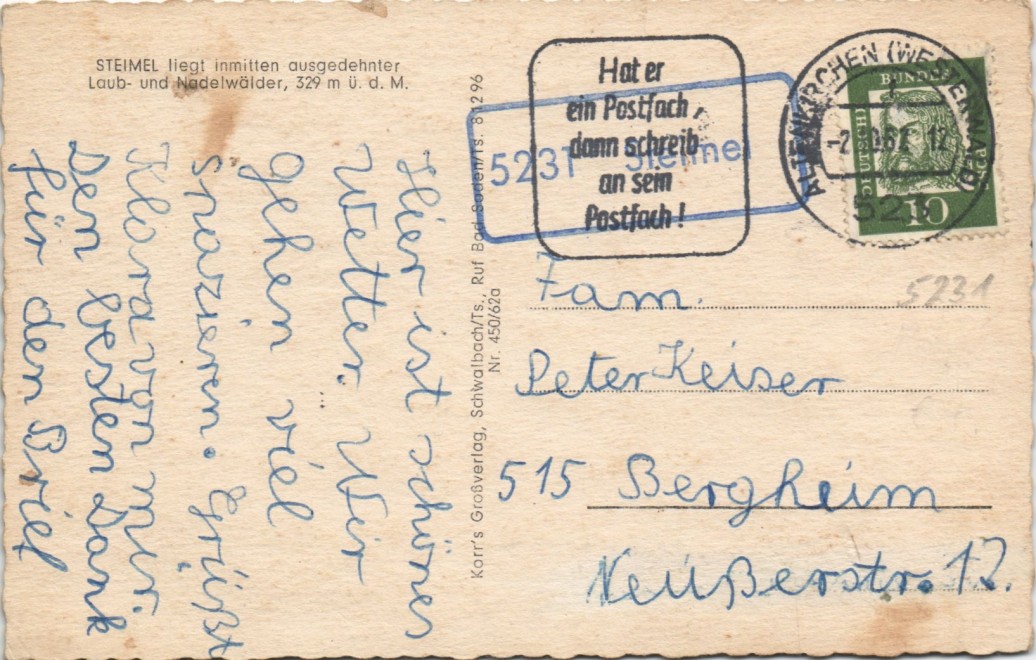 STEIMEL liegt inmitten ausgedehnter
Laub- und Nadelwälder, 329 m ü. d. M.
Hier ist schönes
Wetter. Wir
gehen viel
spazieren. Grüßt
Klara von mir.
Den besten Dank
für den Brief
Karr's Großverlag, Schwalbach/Ts., Ruf Bad Soden/Ts. 81296
Nr. 450/62a
5231 Steimel
Hat er
ein Postfach
dann schreib
an sein
Postfach!
ALTENKIRCHEN (WESTERWALD)
523
DEUTSCHE
BUNDESPOST
10
5231
Fam.
Peter Keiser
515 Bergheim
Neußerstr. 12.